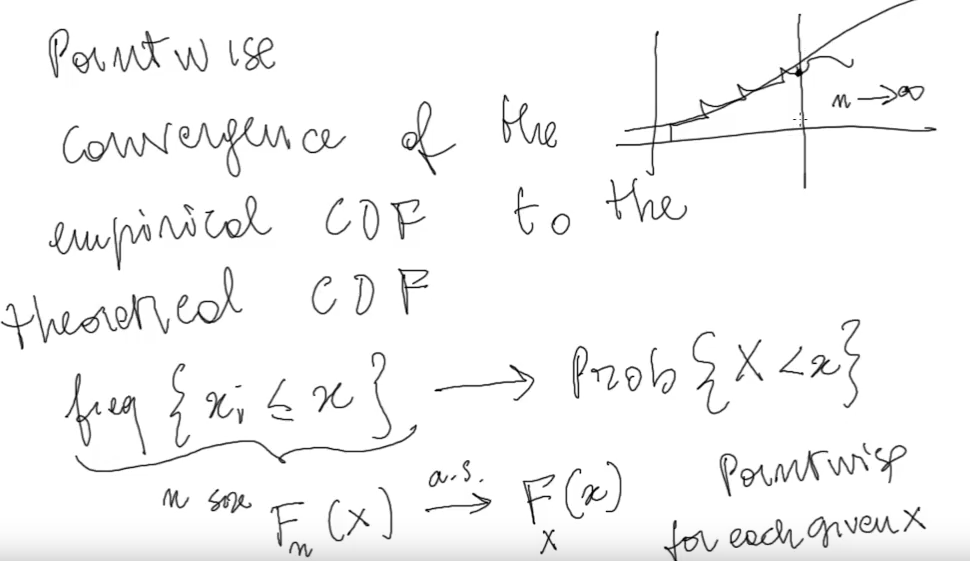 Pointwise
convergence of the
empirical CDF to the
theoretical CDF
n → ∞
freq { xᵢ ≤ x } → Prob { X < x }
n size Fₙ (x) a.s. → F_X (x)
Pointwise
for each given x